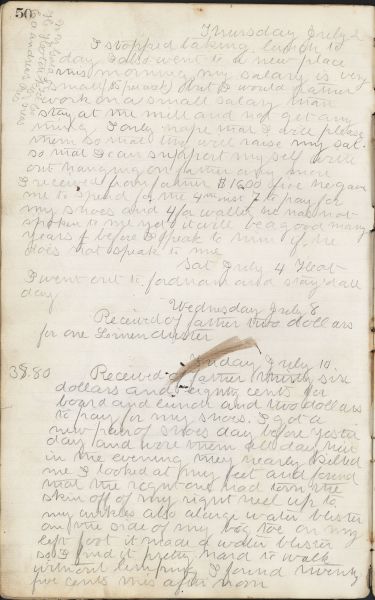 50
Thursday July 2
I stopped taking lunch to
day I also went to a new place
this morning my salary is very
small but I would rather
work on a small salary than
stay at the mill and not get any
thing I only hope that I will please
them so that they will raise my sal-
so that I can support my self with
out hanging on father any more
I received from father $16.00 five he gave
me to spend for the 4 7 to pay for
my shoes and 4 for wallet he has not
spoken to me yet it will be a good many
years before I speak to him if he
does not speak to me
Sat July 4 Hot
I went out to fordham and stay'd all
day
Wednesday July 8
Received of father two dollars
for one
Friday July 10
38.80 Received of father thirty six
dollars and eighty cents for
board and lunch and two dollars
to pay for my shoes. I got a
new pair of shoes day before yester
day and wore them all day but
in the evening they nearly killed
me I looked at my feet and found
that the right one had torn the
skin off of my right heel up to
my ankles also a large water blister
on the side of my big toe on my
left foot it made a water blister
so I find it pretty hard to walk
without limping I found twenty
five cents this after noon